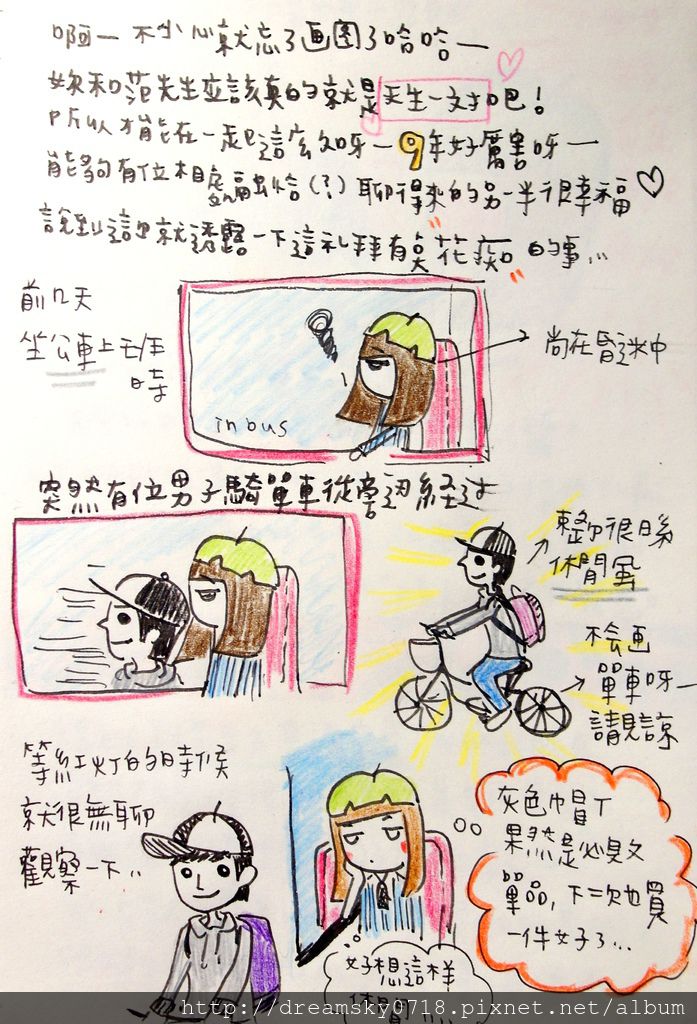 啊—不小心就忘了画圖了哈哈—
妳和范先生应該真的就是天生一对吧!
所以才能在一起這应久呀—9年好厲害呀—
能夠有位相處融洽(?)聊得來的另一半很幸福
說到這裡就透露一下這礼拜有莫花痴的事...
前几天
坐公車上班
時
in bus
尚在昏迷中
突然有位男子騎單車從旁边経过
整个很日系
休閒風
不会画
單車呀—
請見諒
等紅灯的時候
就很無聊
觀察一下..
灰色帽T
果然是必敗
單品,下次也買
一件好了...
好想這樣
休閒
http://dreamsky0718.pixnet.net/album